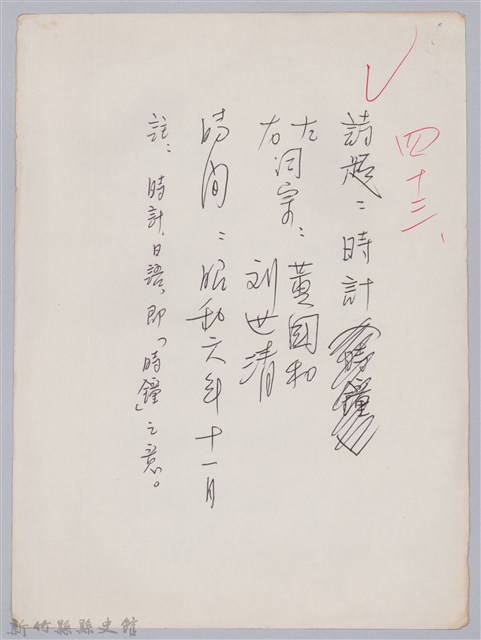 四十三、
詩題：時計
左右詞宗：黃國和
劉世清
時間：昭和六年十一月
註：時計、日語，即「時鐘」之意。
新竹縣縣史館